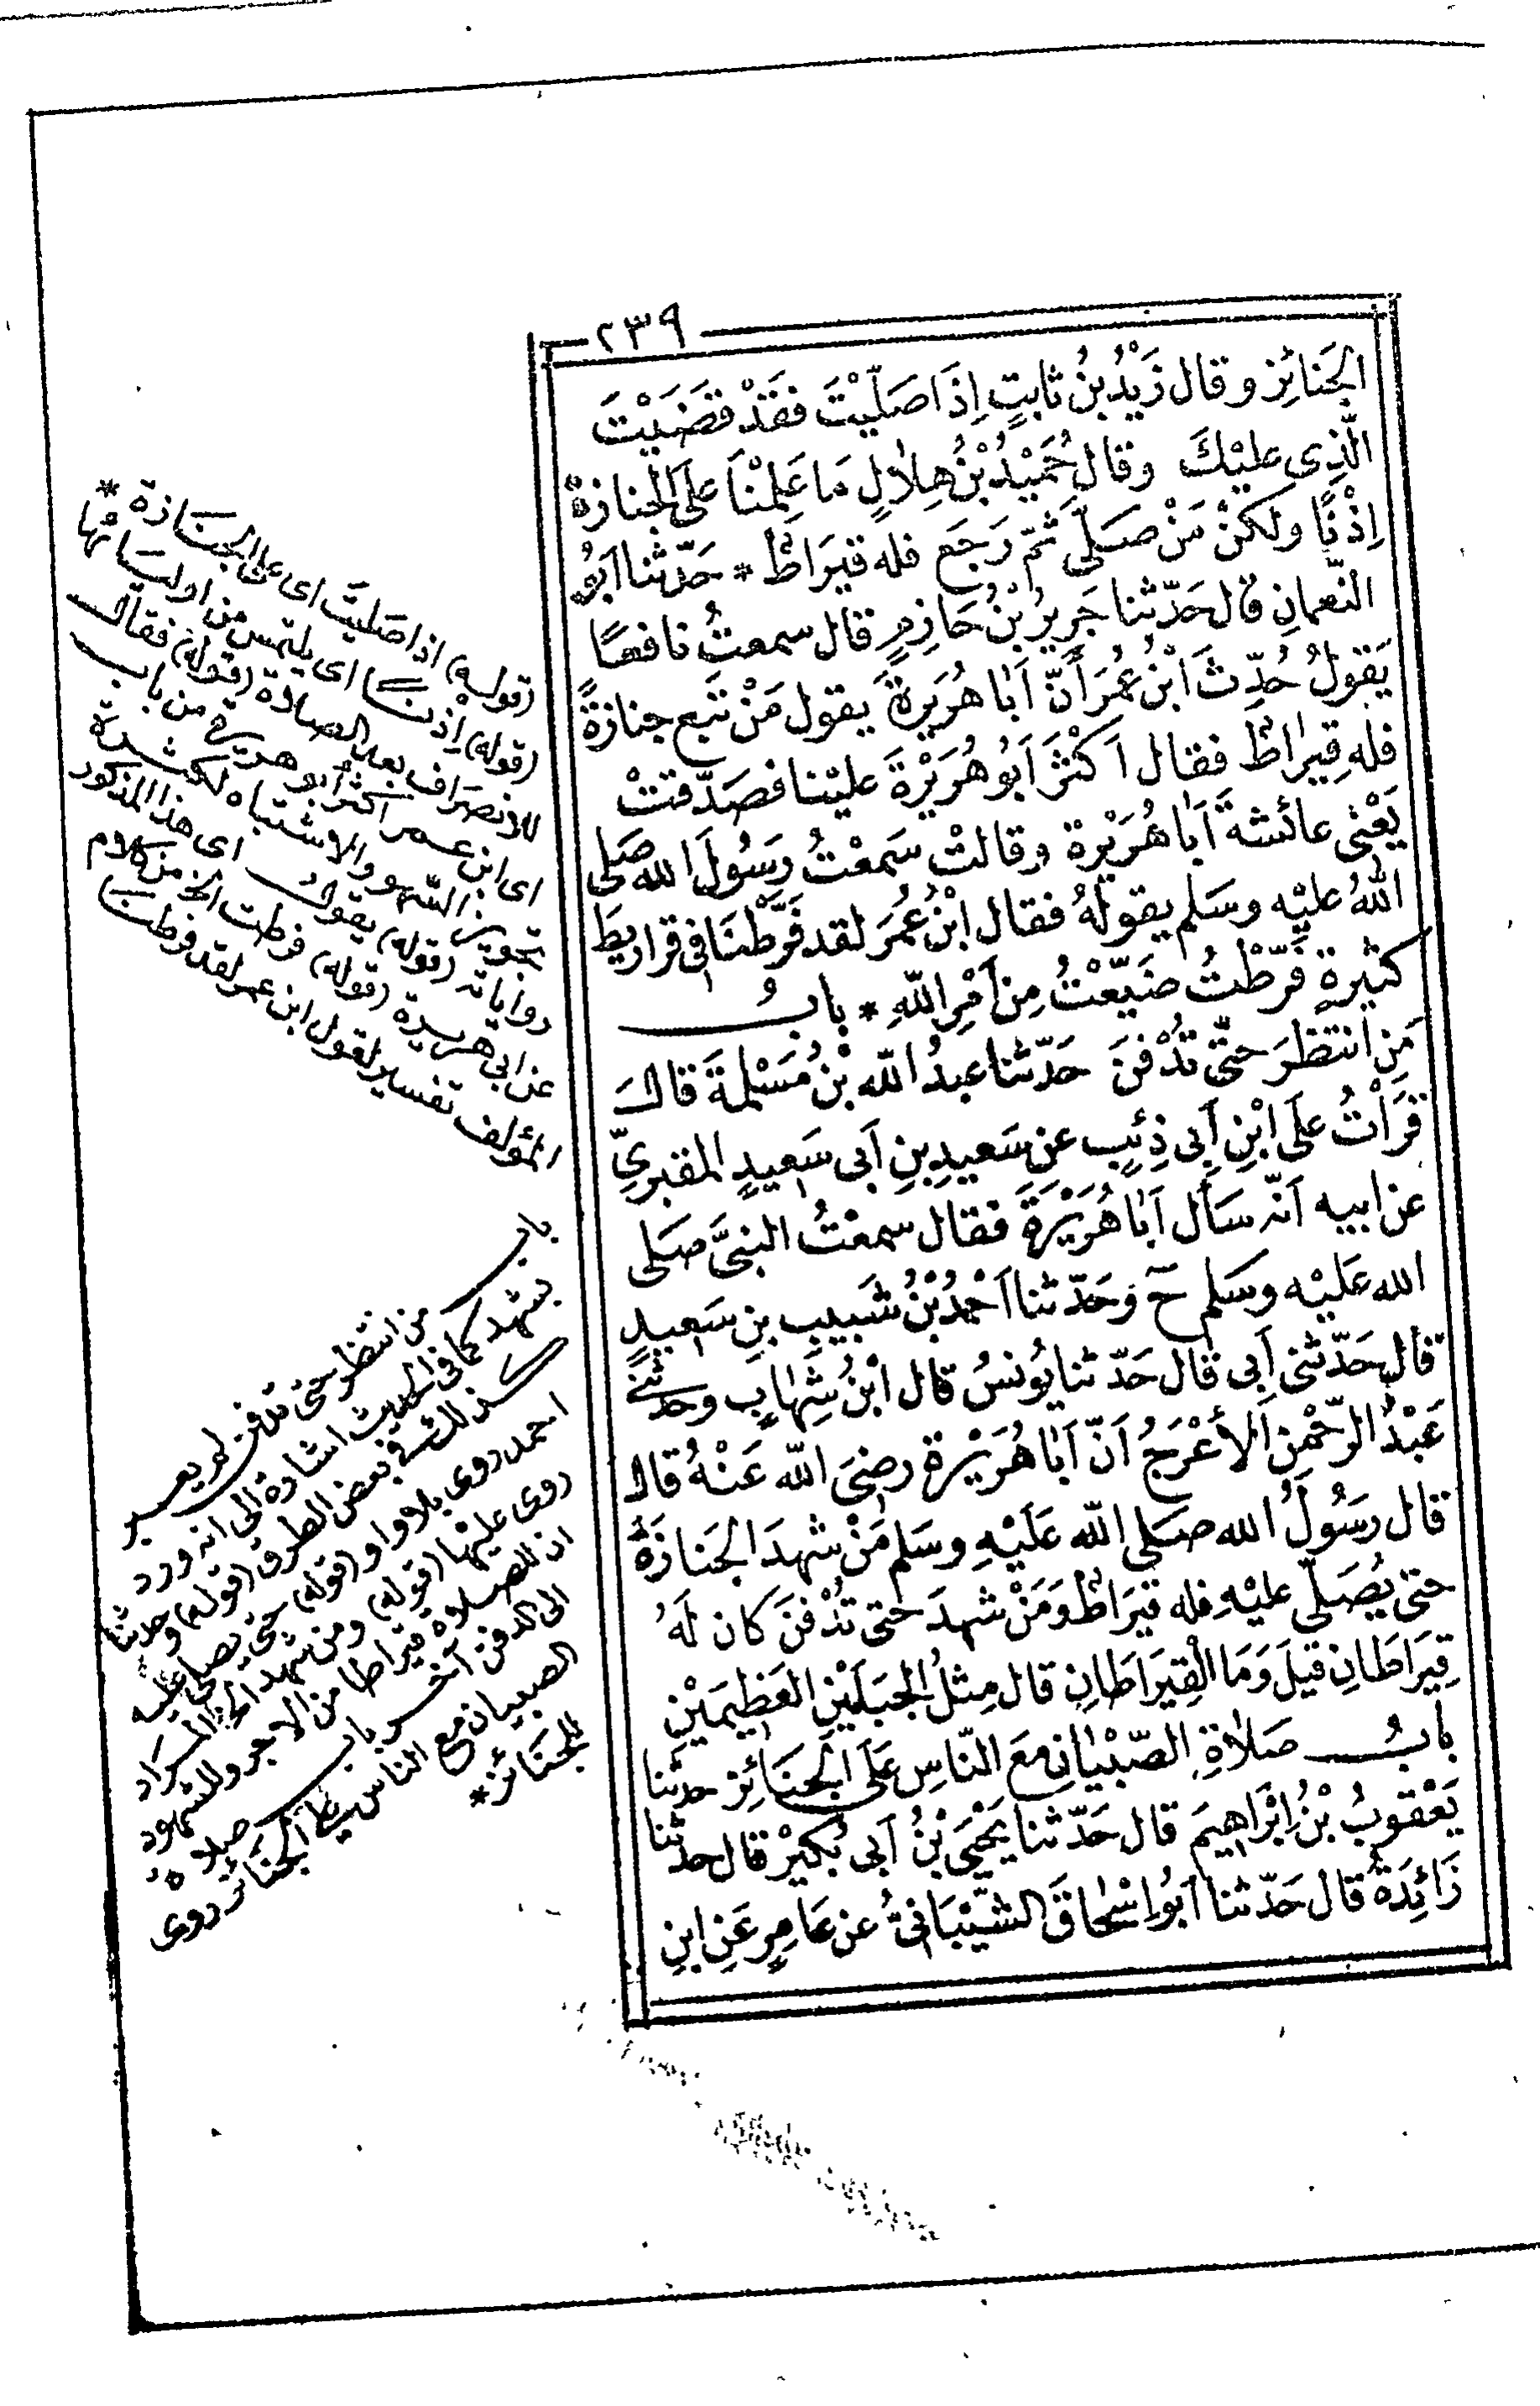 ٢٣٩
الجَنائِز وقال زَيْدُ بنُ ثابتٍ إِذَا صَلَّيْتَ فقَدْ قَضَيْتَ
الّذِى عليْكَ وقال حُمَيْدُ بْنُ هِلالٍ مَا عَلِمْنَا عَلَى الجنازة
اِذْنًا ولكنْ مَنْ صَلّى ثمّ رَجَع فله قيرَاطٌ * حَدّثنا ابَوُ
النّعمانِ قال حَدّثنا جَرِيرُ بْنُ حَازِمٍ قال سمعتُ نافعًا
يَقولُ حُدِّثَ ابْنُ عُمَرَ أَنّ اَبَا هُرَيرةَ يقول مَنْ تبع جنازةً
فله قِيرَاطٌ فقال اَكْثَرَ اَبُو هُرَيْرَةَ عليْنا فصَدّقتْ
يَعْنى عائشةَ اَبَا هُرَيْرة وقالتْ سَمعْتُ رَسُولَ الله صَلى
اللهُ عليْه وسَلم يقولهُ فقال ابْنُ عُمَرَ لقد فَرَّطْنَا فى قراريطَ
كثيرةٍ فَرّطْتُ ضَيّعْتُ مِنْ اَمْرِ اللّهِ * بابُ
مَنِ انتظرَ حتّى تُدْفنَ حَدّثنا عبدُ اللّه بْنُ مَسْلمةَ قال
قَرَأتُ عَلَى ابْنِ اَبِى ذِئبٍ عن سَعيدِ بنِ اَبى سَعيدٍ المقبرىِّ
عن ابيه اَنّه سَأل اَبَا هُرَيْرَةَ فقال سمعْتُ النبىَّ صَلى
الله عَليْه وسَلم ح وَحَدّثنا اَحْمَدُ بْنُ شَبيبِ بنِ سَعيدٍ
قال حَدّثنى اَبِى قال حَدّثنا يُونسُ قال ابْنُ شِهَابٍ وحدثنى
عَبْدُ الرّحْمنِ الأعْرَجُ اَنّ اَبَا هُرَيْرة رضىَ اللّه عَنْهُ قال
قال رَسُولُ الله صَلى اللّه عَلَيْهِ وسَلم مَنْ شهدَ الجَنازَةَ
حتى يُصَلّى عليْهِ فله قيرَاطٌ وَمَنْ شهدَ حَتى تُدْفنَ كان لهُ
قِيرَاطَانِ قيلَ وَمَا الْقِيرَاطَانِ قال مِثلُ الجبَلَيْنِ العَظيمَيْنِ
بابُ صَلاةِ الصّبْيانِ معَ النّاسِ عَلَى الجَنَائِز حدثنا
يَعْقوبُ بْنُ اِبْرَاهِيمَ قال حَدّثنا يَحْيَى بْنُ اَبى بُكَيْرٍ قال حدثنا
زَائِدَةُ قال حَدّثنا اَبُو اِسْحَاقَ الشّيْبَانىُّ عن عَامِرٍ عَنِ ابنِ
(قوله) اذا صليت اى على الجنازة *
(قوله) اِذنا اى يلتمس من اوليائها
للانصراف بعد الصلاة (قوله) فقال
اى ابن عمر اكثر أبو هريرة من باب
تجويز السهو والاشتباه لكثرة
رواياته (قوله) يقول اى هذا المذكور
عن ابى هريرة (قوله) فرطت الخ من كلام
المؤلف تفسير لقول ابن عمر لقد فرطنا
باب من انتظر حتى تدفن لم يعبر
بشهد كما فى الحديث اشارة الى انه ورد
كذلك فى بعض الطرق (قوله) وحدثنا
احمد روى بلا واو (قوله) حتى يصلى عليه
روى عليها (قوله) ومن شهد الخ المراد
ان للصلاة قيراطا من الاجر وللشهود
الى الدفن آخر باب صلاة
الصبيان مع الناس على الجنائز روى
للجنائز *